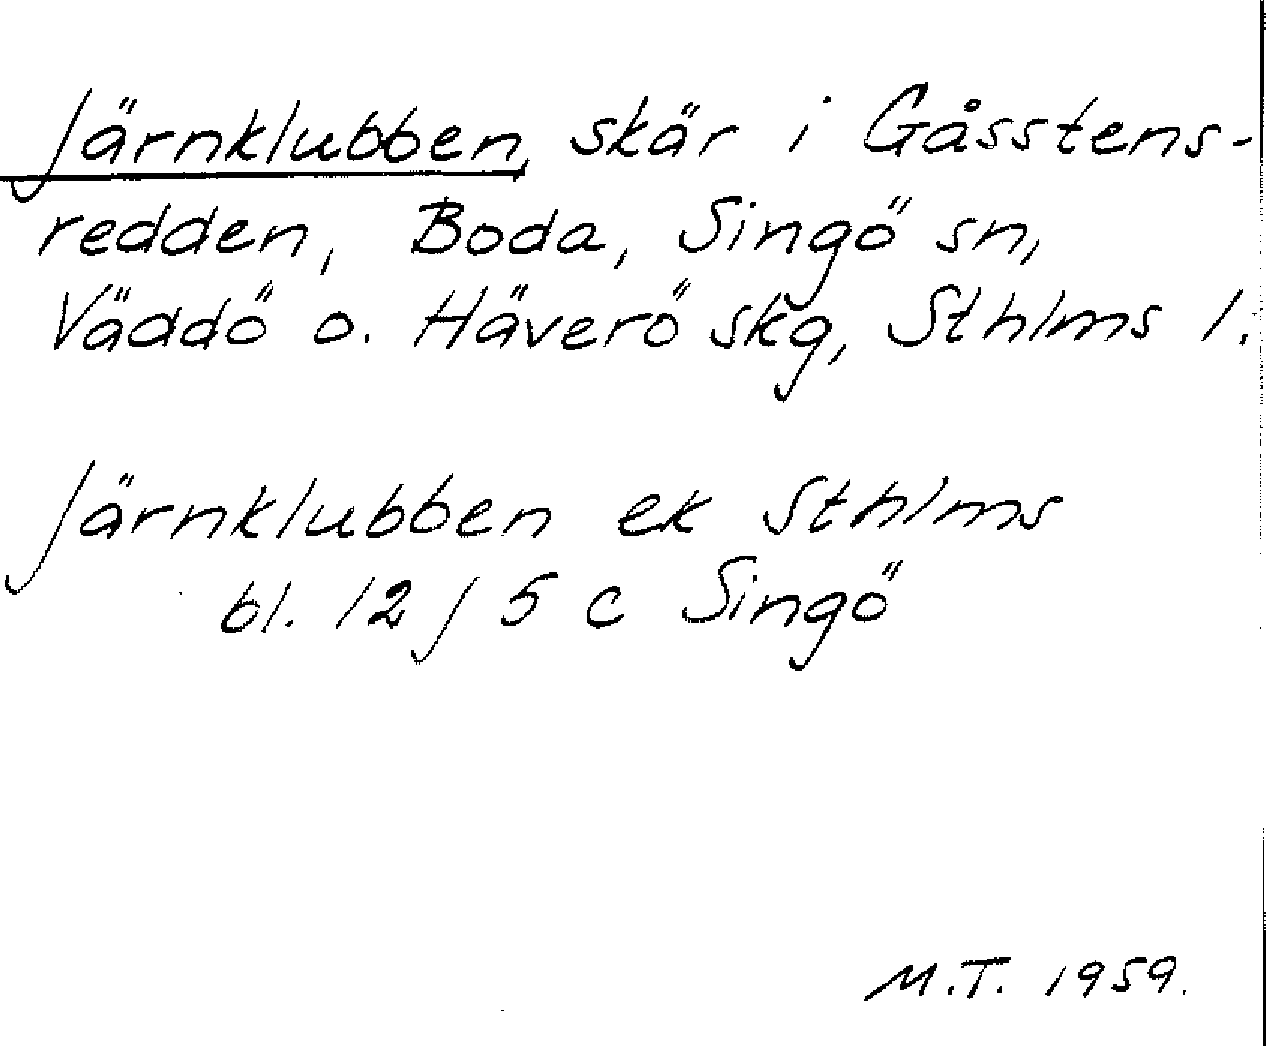 Järnklubben, skär i Gåsstens-
redden, Boda, Singö sn,
Väddö o. Häverö skg, Sthlms l.
Järnklubben ek Sthlms
bl. 12 j 5 c Singö
M.T. 1959.